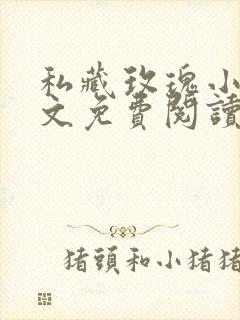 私藏玫瑰小
文免費閱讀
猪頭和小猪猪